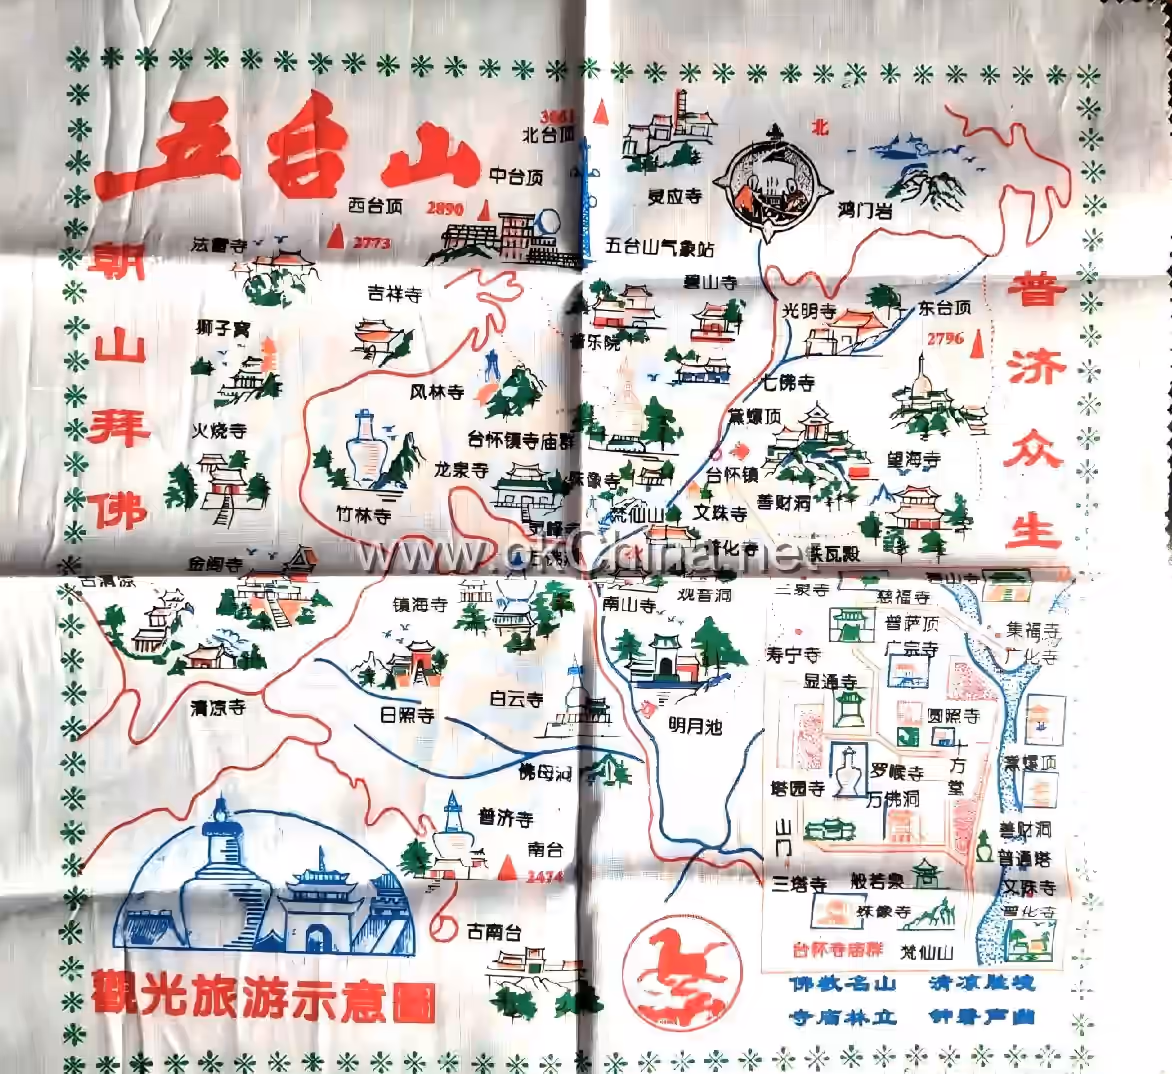 五台山
朝山拜佛
普济众生
3061
北台顶
中台顶
西台顶
2890
2773
灵应寺
北
鸿门岩
五台山气象站
法雷寺
吉祥寺
碧山寺
光明寺
东台顶
2796
狮子窝
普乐院
风林寺
七佛寺
黛螺顶
火烧寺
台怀镇寺庙群
龙泉寺
殊像寺
台怀镇
望海寺
善财洞
竹林寺
梵仙山
文珠寺
灵峰寺
普化寺
www.okChina.net
金阁寺
古清凉
镇海寺
南山寺
观音洞
三泉寺
慈福寺
碧山寺
菩萨顶
集福寺
广宗寺
广化寺
寿宁寺
显通寺
清凉寺
日照寺
白云寺
明月池
圆照寺
佛母洞
塔园寺
罗睺寺
十方堂
黛螺顶
万佛洞
普济寺
山门
善财洞
南台
2474
普通塔
三塔寺
般若泉
文珠寺
殊像寺
普化寺
古南台
台怀寺庙群
梵仙山
觀光旅游示意圖
佛教名山 清凉胜境
寺庙林立 钟磬声幽